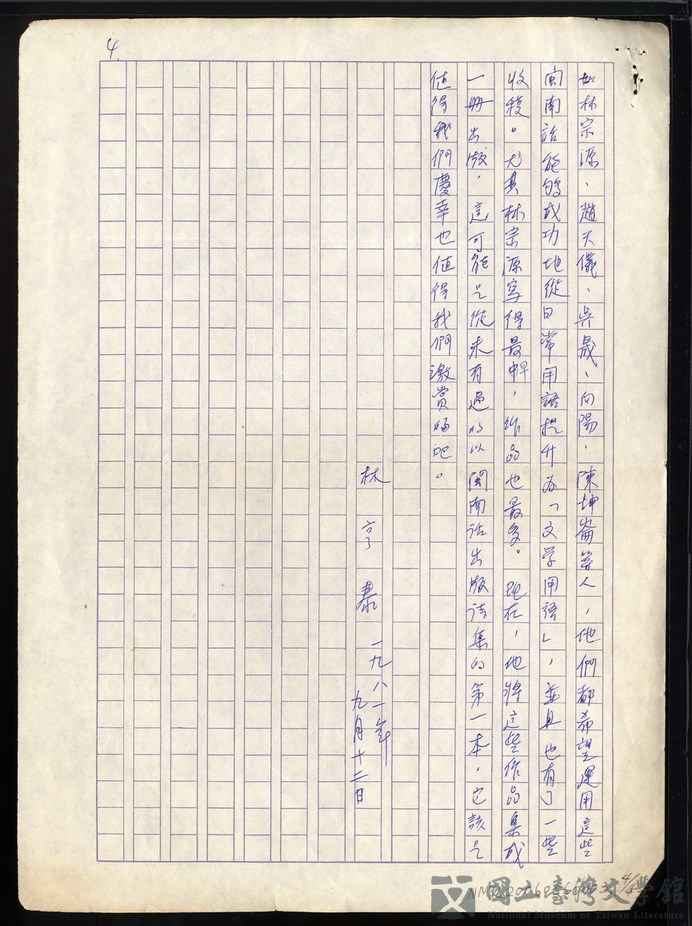 4.
如林宗源、趙天儀、吳晟、向陽、陳坤崙等人，他們都希望運用這些
閩南話能夠成功地從日常用語提升為「文学用語」，並且也有了一些
收穫。尤其林宗源寫得最早，作品也最多。現在，他將這些作品集成
一冊出版，這可能是從未有過的以閩南话出版詩集的第一本，它該是
值得我們慶幸也值得我們激賞的吧。
林亨泰
一九八一年
九月十二日
4/4
國立臺灣文學館
National Museum of Taiwan Literature